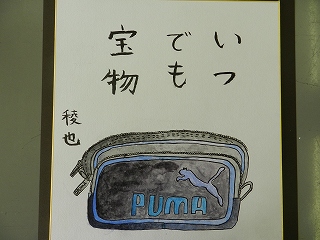 いつ
でも
宝物
稜也
PUMA